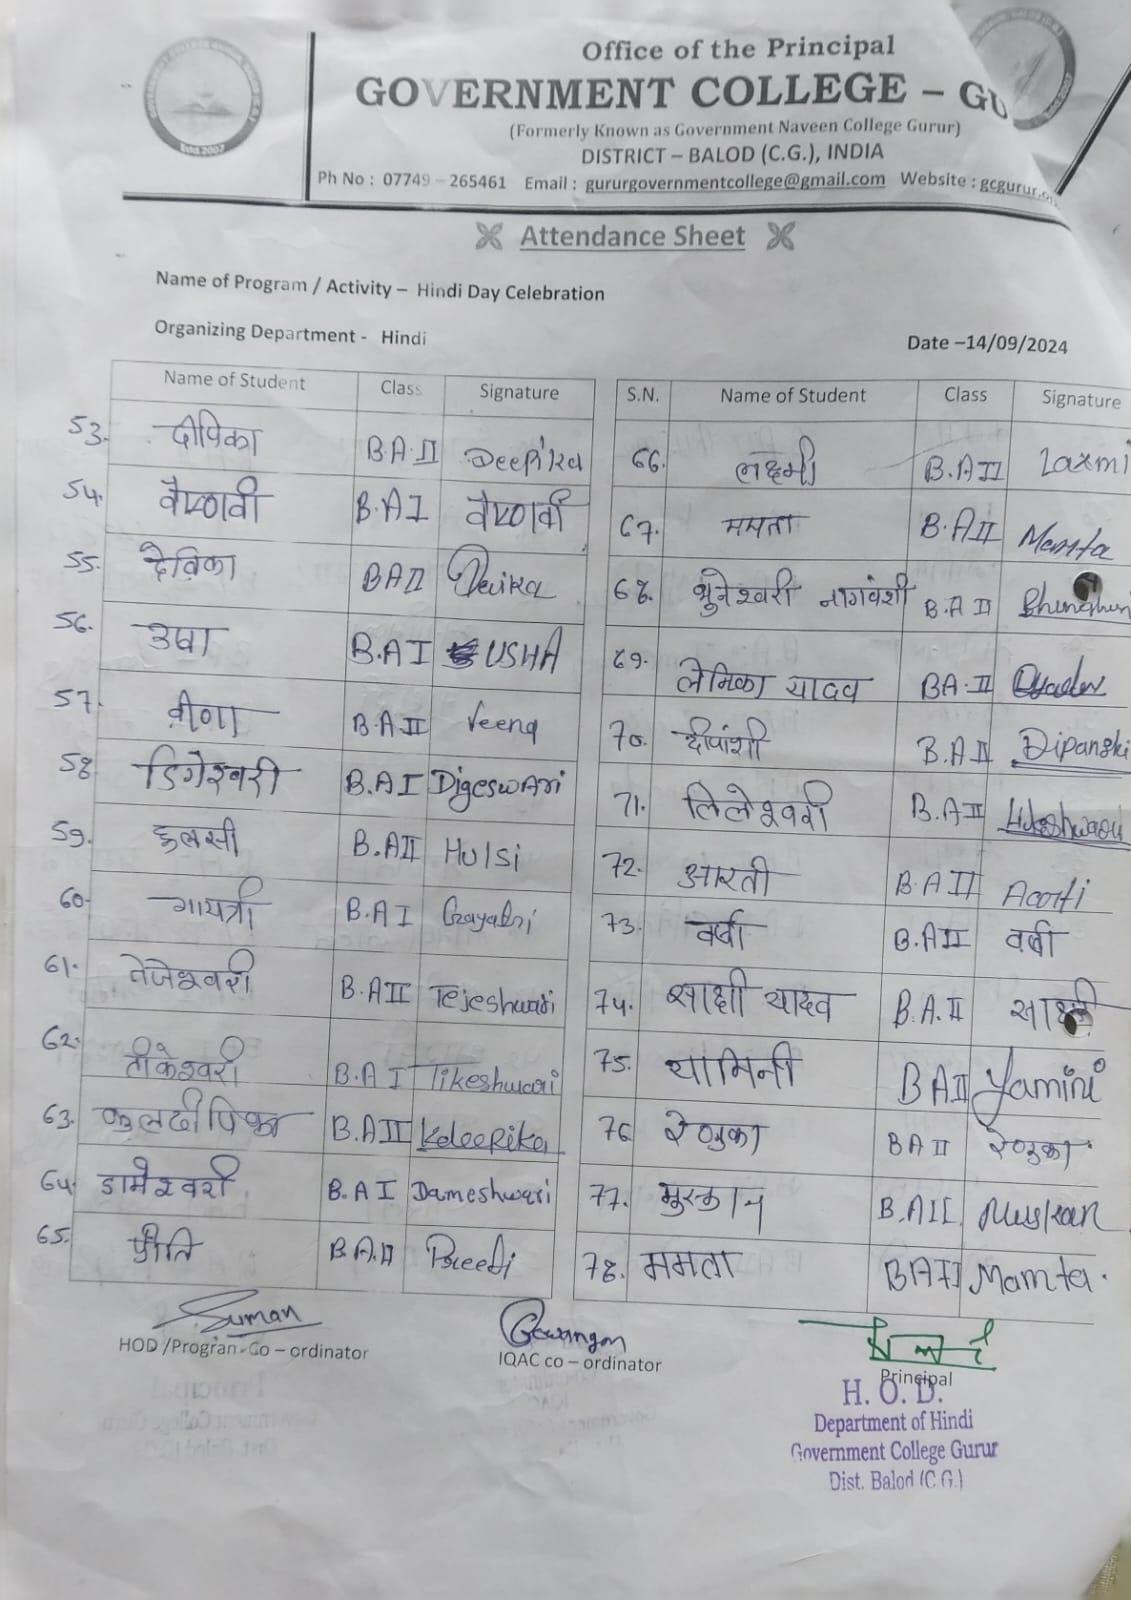 Office of the Principal
GOVERNMENT COLLEGE – GU
(Formerly Known as Government Naveen College Gurur)
DISTRICT – BALOD (C.G.), INDIA
Ph No : 07749 – 265461 Email : gururgovernmentcollege@gmail.com Website : gcgurur.
Estd.2007
Attendance Sheet
Name of Program / Activity – Hindi Day Celebration
Organizing Department - Hindi
Date –14/09/2024
Name of Student Class Signature
53. दीपिका B.A II Deepika
54. वैष्णवी B.A I वैष्णवी
55. देविका BA II Devika
56. उषा B.A I USHA
57. वीणा B.A II Veena
58. डिगेश्वरी B.A I Digeswari
59. हुलसी B.A II Hulsi
60. गायत्री B.A I Gayatri
61. तेजेश्वरी B.A II Tejeshwari
62. टीकेश्वरी B.A I Tikeshwari
63. कुलदीपिका B.A II Kdeepika
64. डामेश्वरी B.A I Dameshwari
65. प्रीति B.A.II Preeti
S.N. Name of Student Class Signature
66. लक्ष्मी B.A II Laxmi
67. ममता B.A II Mamta
68. भुनेश्वरी नागवंशी B.A II
69. लेमिका यादव BA.II
70. दीपांशी B.A II Dipanshi
71. लिलेश्वरी B.A II
72. आरती B.A II Aarti
73. वर्षा B.A II वर्षा
74. साक्षी यादव B.A.II साक्षी
75. यामिनी BA II Yamini
76 रेणुका BA II रेणुका
77. मुस्कान B.A II Muskan
78. ममता BA II Mamta.
Suman
HOD /Program Co – ordinator
IQAC co – ordinator
Principal
H. O. D.
Department of Hindi
Government College Gurur
Dist. Balod (C.G.)